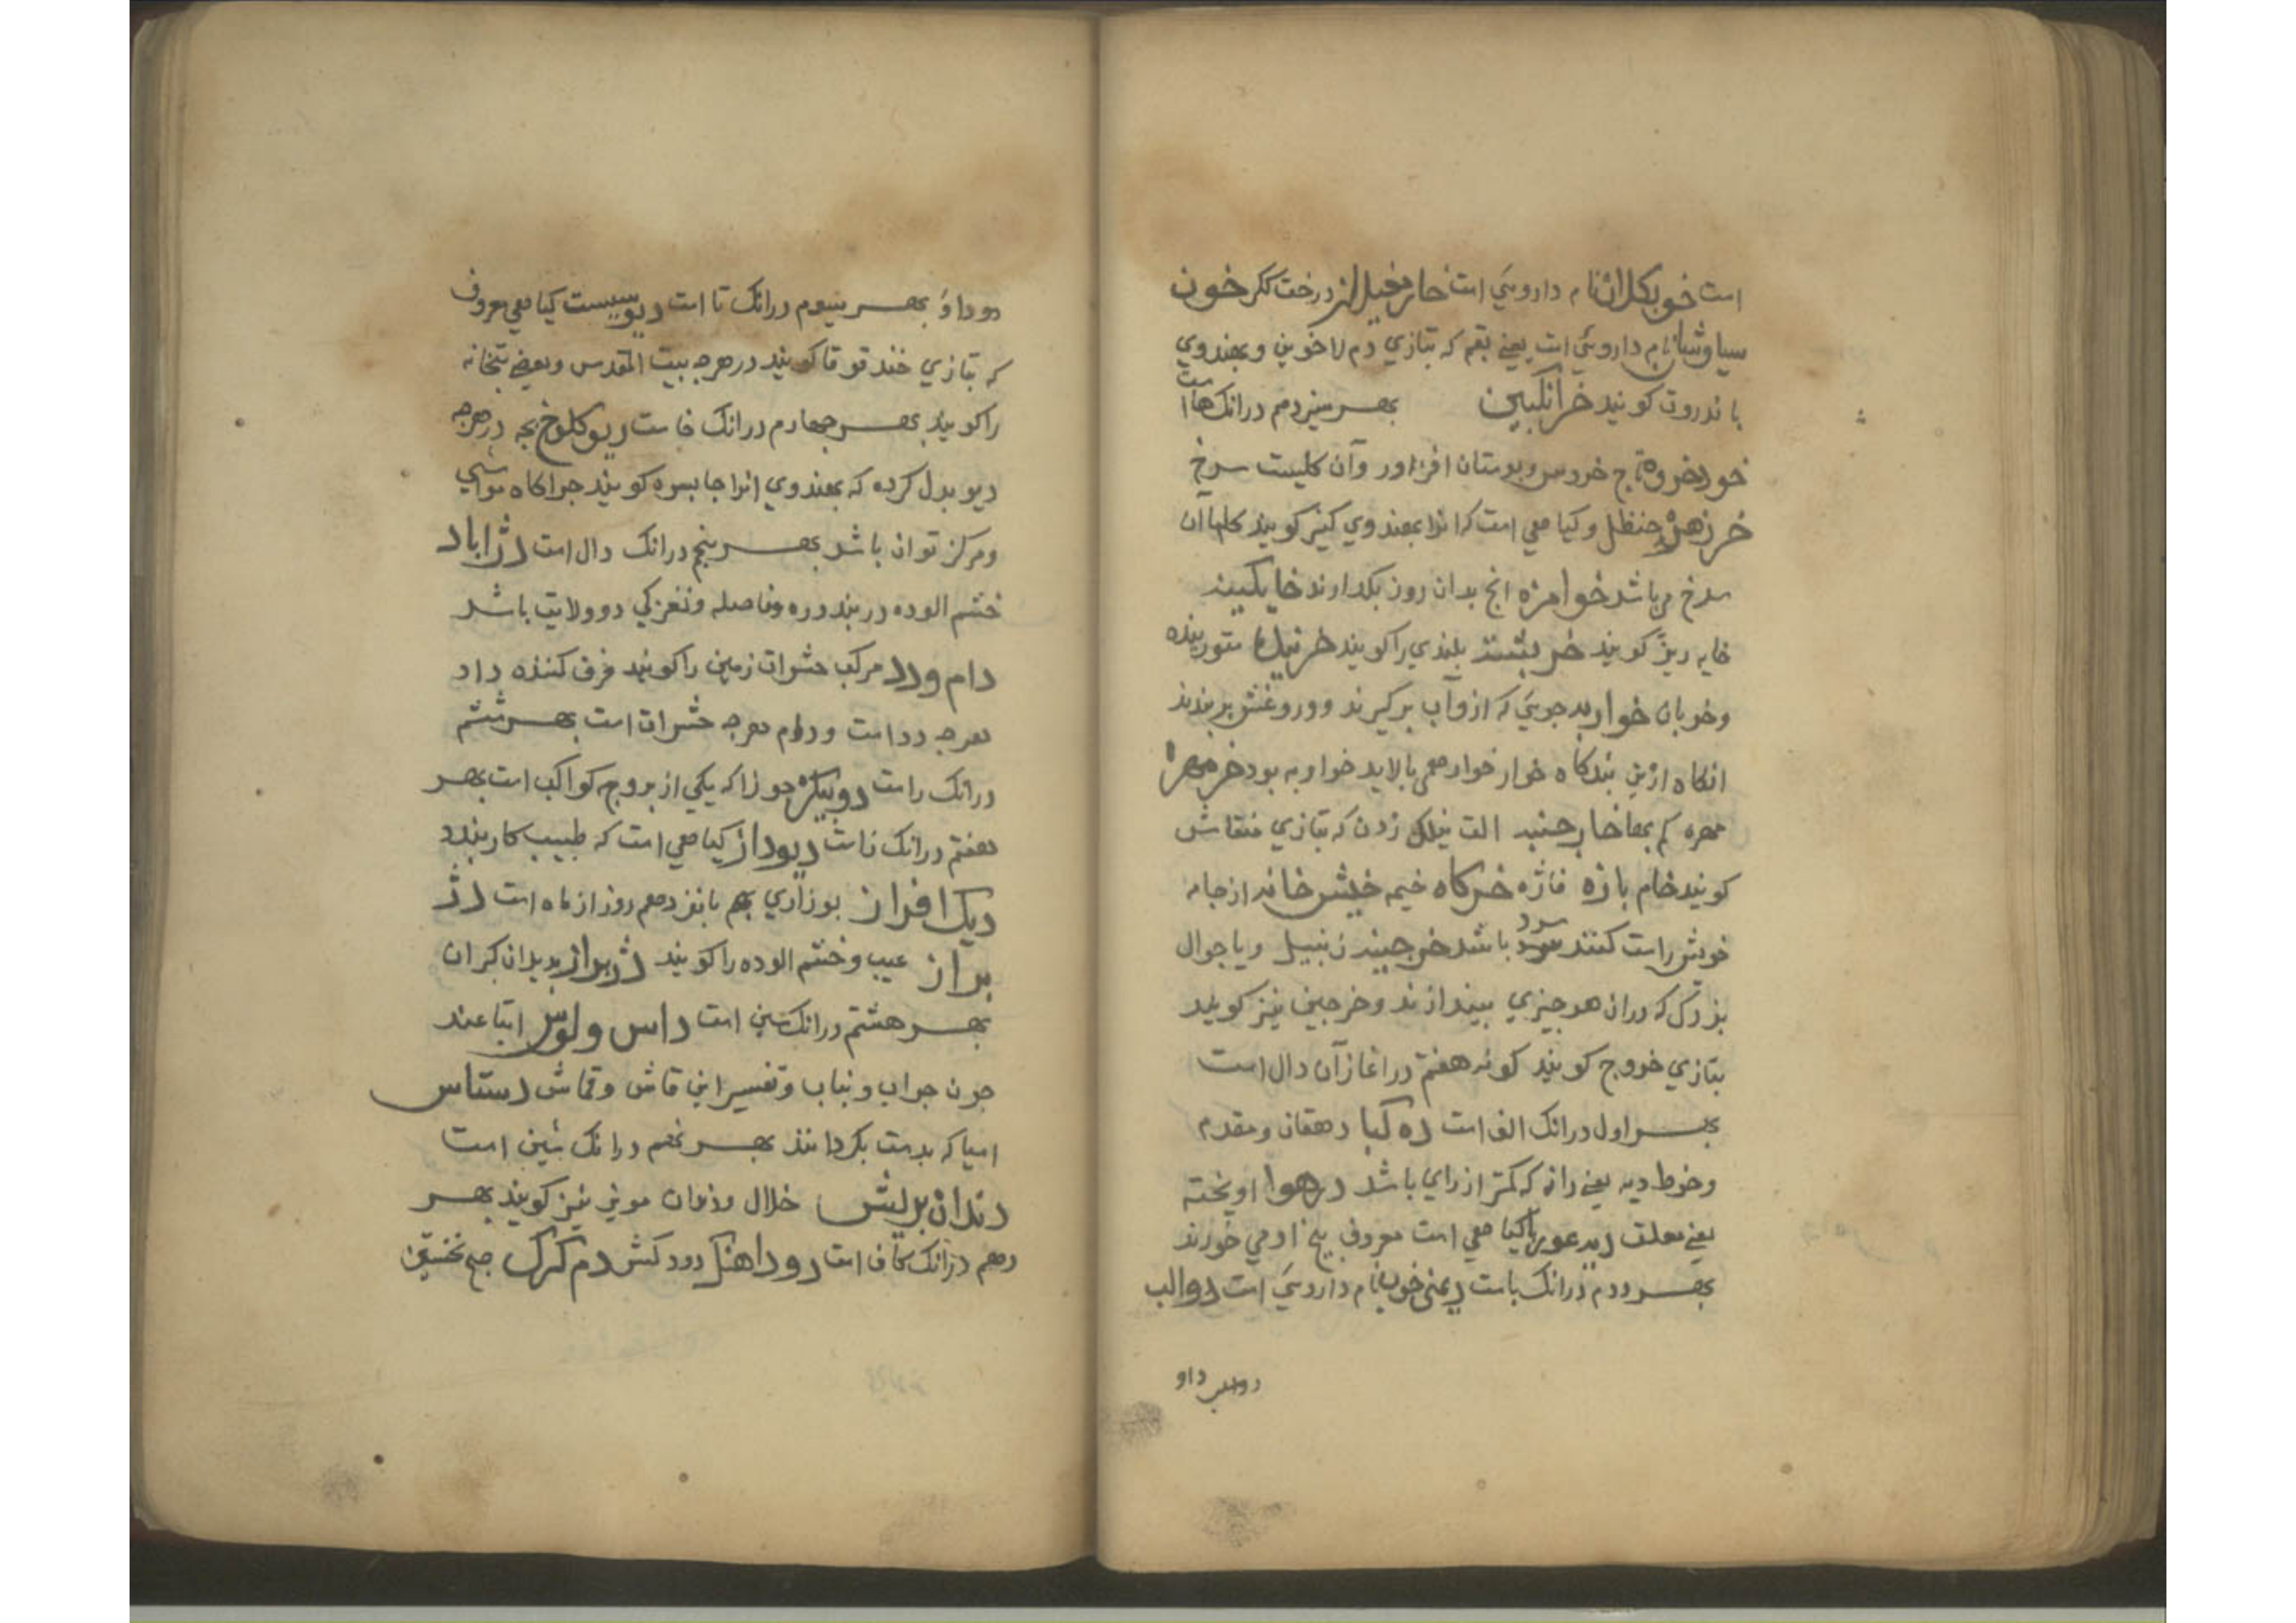 است خوبکلان نام داروئی است خار مغیلان درخت ککر خون
سیاوشان نام داروئی است یعنی بقم که بتازی دم لاخوین و بهندوی
باندروت کویند خرانکبین بهر سیزدهم درانک هاست
خود خروه تاج خروس و بوستان افروز وآن کلیست سرخ
خرزهره حنظل وکیاهی است که انرا بهندوی کنیر کویند کلهاآن
سرخ می باشد خوامزه انج بدان روز بکذارند خایکینه
خایه ریز کویند خر پشته بلندی را کویند
وخوبان جوئی که ازو آب برکیرند و بربندند
انکاه ازین بندکاه خوار خوار همی بالاید بود خرمهره
مهره کم بها خار چینه الت زدن که بتازی منقاش
کویند خام بازه فاژه خرکاه خیمه خیش خانه از جامه
خویش راست کنند سرد باشد خرجینه زنبیل ویا جوال
بزرک که دران هر چیزی بیندازند وخرجین نیز کویند
بتازی خروج کویند کونه هفتم در اغاز آن دال است
بهر اول درانک الف است ده کیا دهقان ومقدم
دیه یعنی رانه که کمتر از رای باشد درهوا اویخته
یعنی معلق کیاهی است معروف بیخ او می خورند
بهر دوم درانک باست نام داروئی است دوالب
داو
دوداو بهر سیوم درانک تا است دیوسپست کیاهی معروف
که بتازی خندقوقا کویند درهرجه بیت المقدس وبعضی بتخانه
را کویند بهر چهارم درانک خاست دیو کلوخ بچه درهرجه
دیو بدل کرده که بهندوی انرا کویند جراکاه مواشی
ومرکز توان باشد بهر پنجم درانک دال است دژاباد
خشم الوده دربند دره وفاصله دو ولایت باشد
دام ودد مرکب حشرات زمین را کویند فرق کننده داد
هرجه دد است ودام هرجه حشرات است بهر ششم
درانک راست دوپیکر جوزا که یکی از بروج کواکب است بهر
هفتم درانک زاست دیوداز کیاهی است که طبیب کار بندد
دیک افراز بوزاری پانزدهم روز از ماه است دژ
براز عیب وخشم الوده را کویند دژبراز
بهر هشتم درانک سین است داس ولوس اتباعند
جون جراب ونباب وتفسیر این قاش وقماش دستاس
اسیا که بدست بکردانند بهر نهم درانک شین است
دندان پریش خلال نیز کویند بهر
دهم درانک کاف است دوداهنک دودکش دم کرک صبح نخستین